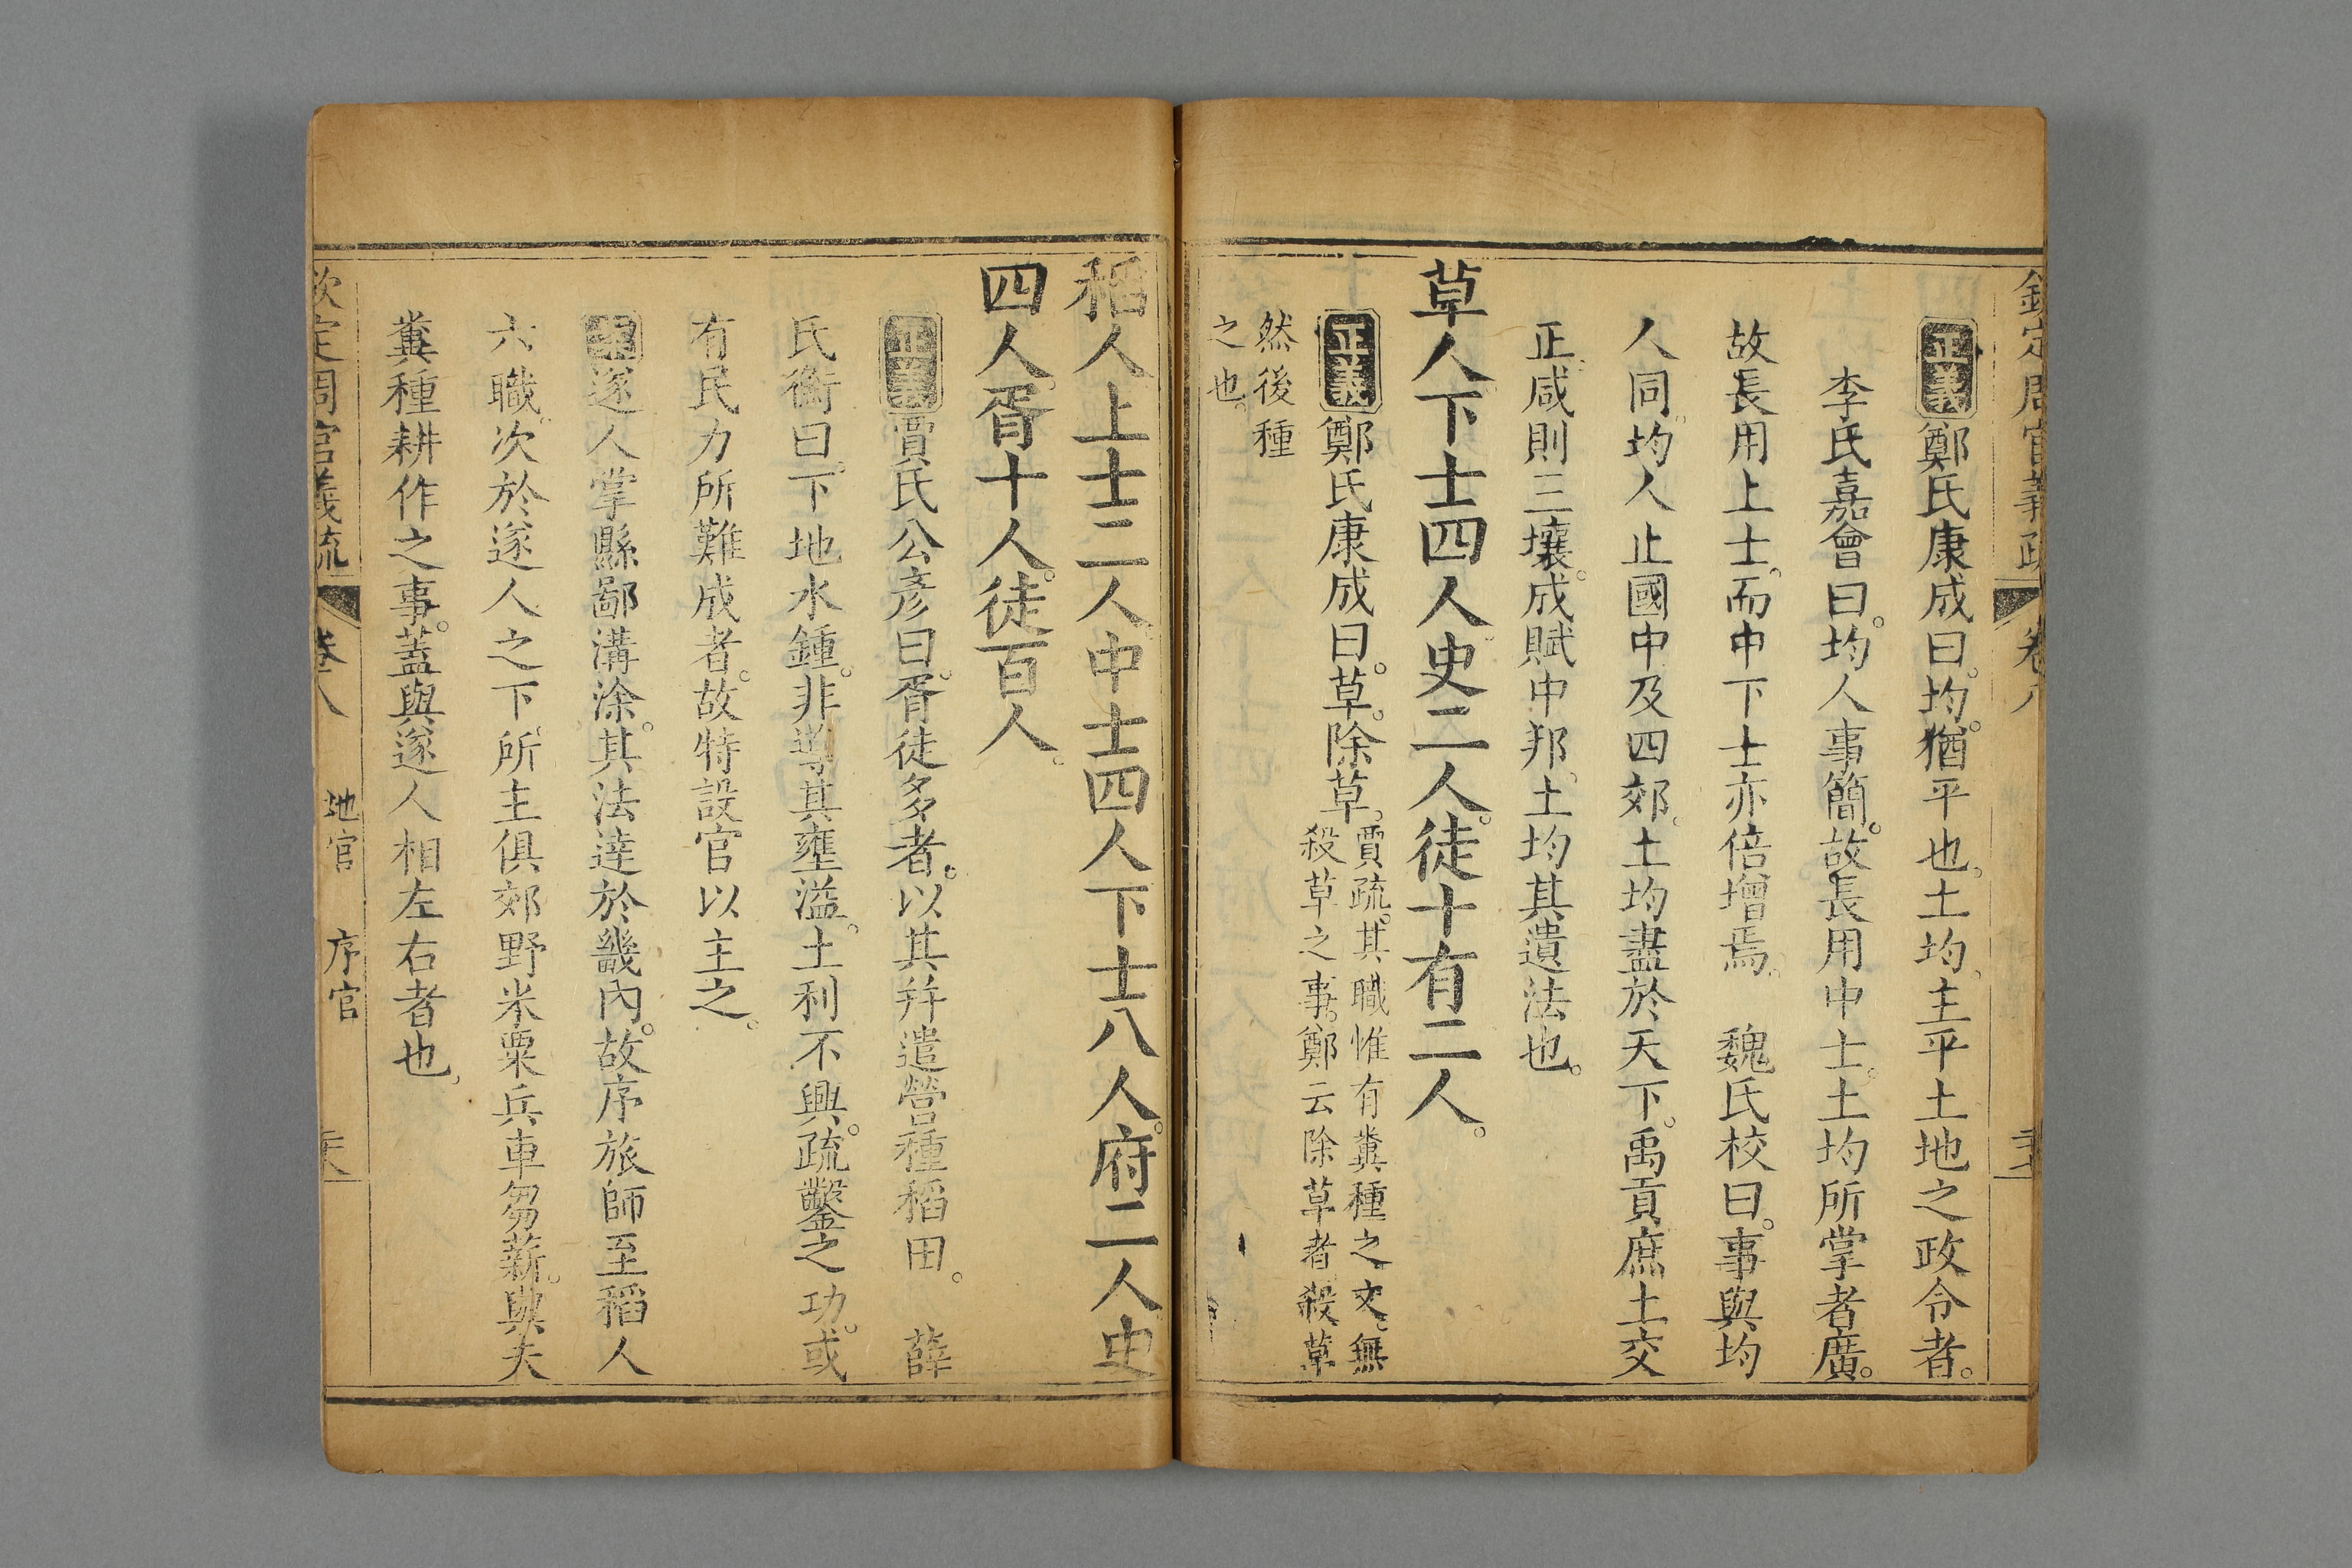 欽定周官義疏 卷八
正義鄭氏康成曰。均。猶平也。土均。主平土地之政令者。
李氏嘉會曰。均人事簡。故長用中士。土均所掌者廣。
故長用上士。而中下士亦倍增焉。 魏氏校曰。事與均
人同。均人止國中及四郊。土均盡於天下。禹貢庶土交
正。咸則三壤。成賦中邦。土均其遺法也。
草人下士四人史二人。徒十有二人。
正義鄭氏康成曰。草。除草。
賈疏。其職惟有糞種之文。無
殺草之事。鄭云除草者殺草
然後種
之也。
稻人上士二人中士四人下士八人。府二人史
四人。胥十人。徒百人。
正義賈氏公彥曰。胥徒多者。以其幷遣營種稻田。 薛
氏衡曰。下地水鍾。非導其壅溢。土利不興。疏鑿之功。或
有民力所難成者。故特設官以主之。
遂人掌縣鄙溝涂。其法達於畿內。故序旅師至稻人
六職。次於遂人之下。所主俱郊野米粟兵車芻薪。與夫
糞種耕作之事。蓋與遂人相左右者也。
欽定周官義疏 卷八 地官 序官